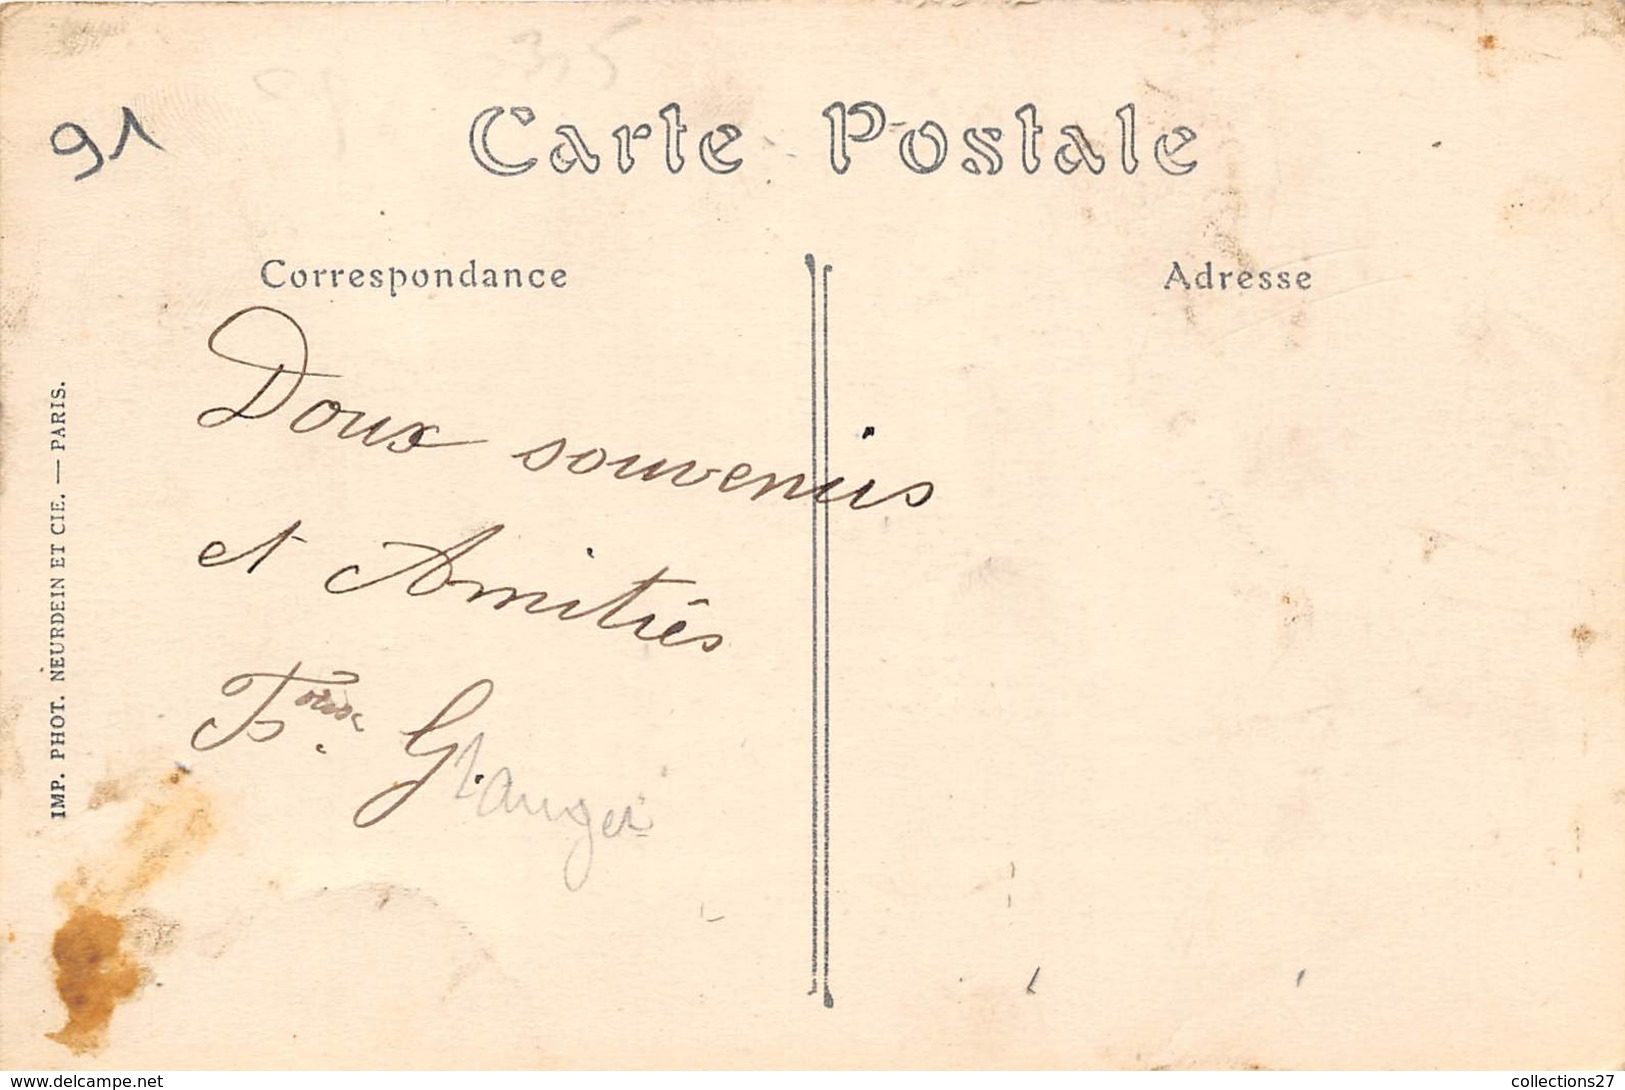 91
Carte Postale
Correspondance
Adresse
Doux souvenirs
et Amitiés
G.
IMP. PHOT. NEURDEIN ET CIE. — PARIS.
www.delcampe.net
collections27